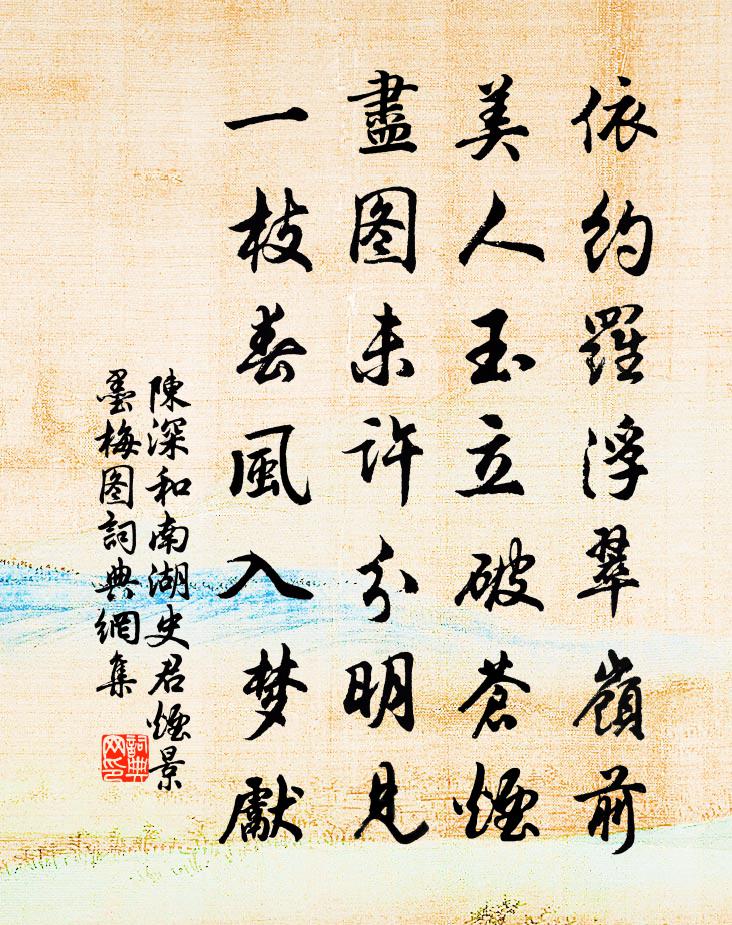 依約羅浮翠嶺前
美人玉立破蒼煙
盡图未許分明見
一枝春風入梦獻
陳深和南湖史君煙景
墨梅图詞典網集
詞典
网印